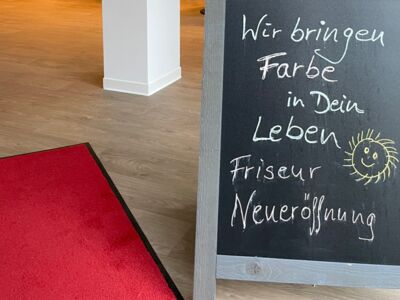 Wir bringen
Farbe
in Dein
Leben
Friseur
Neueröffnung